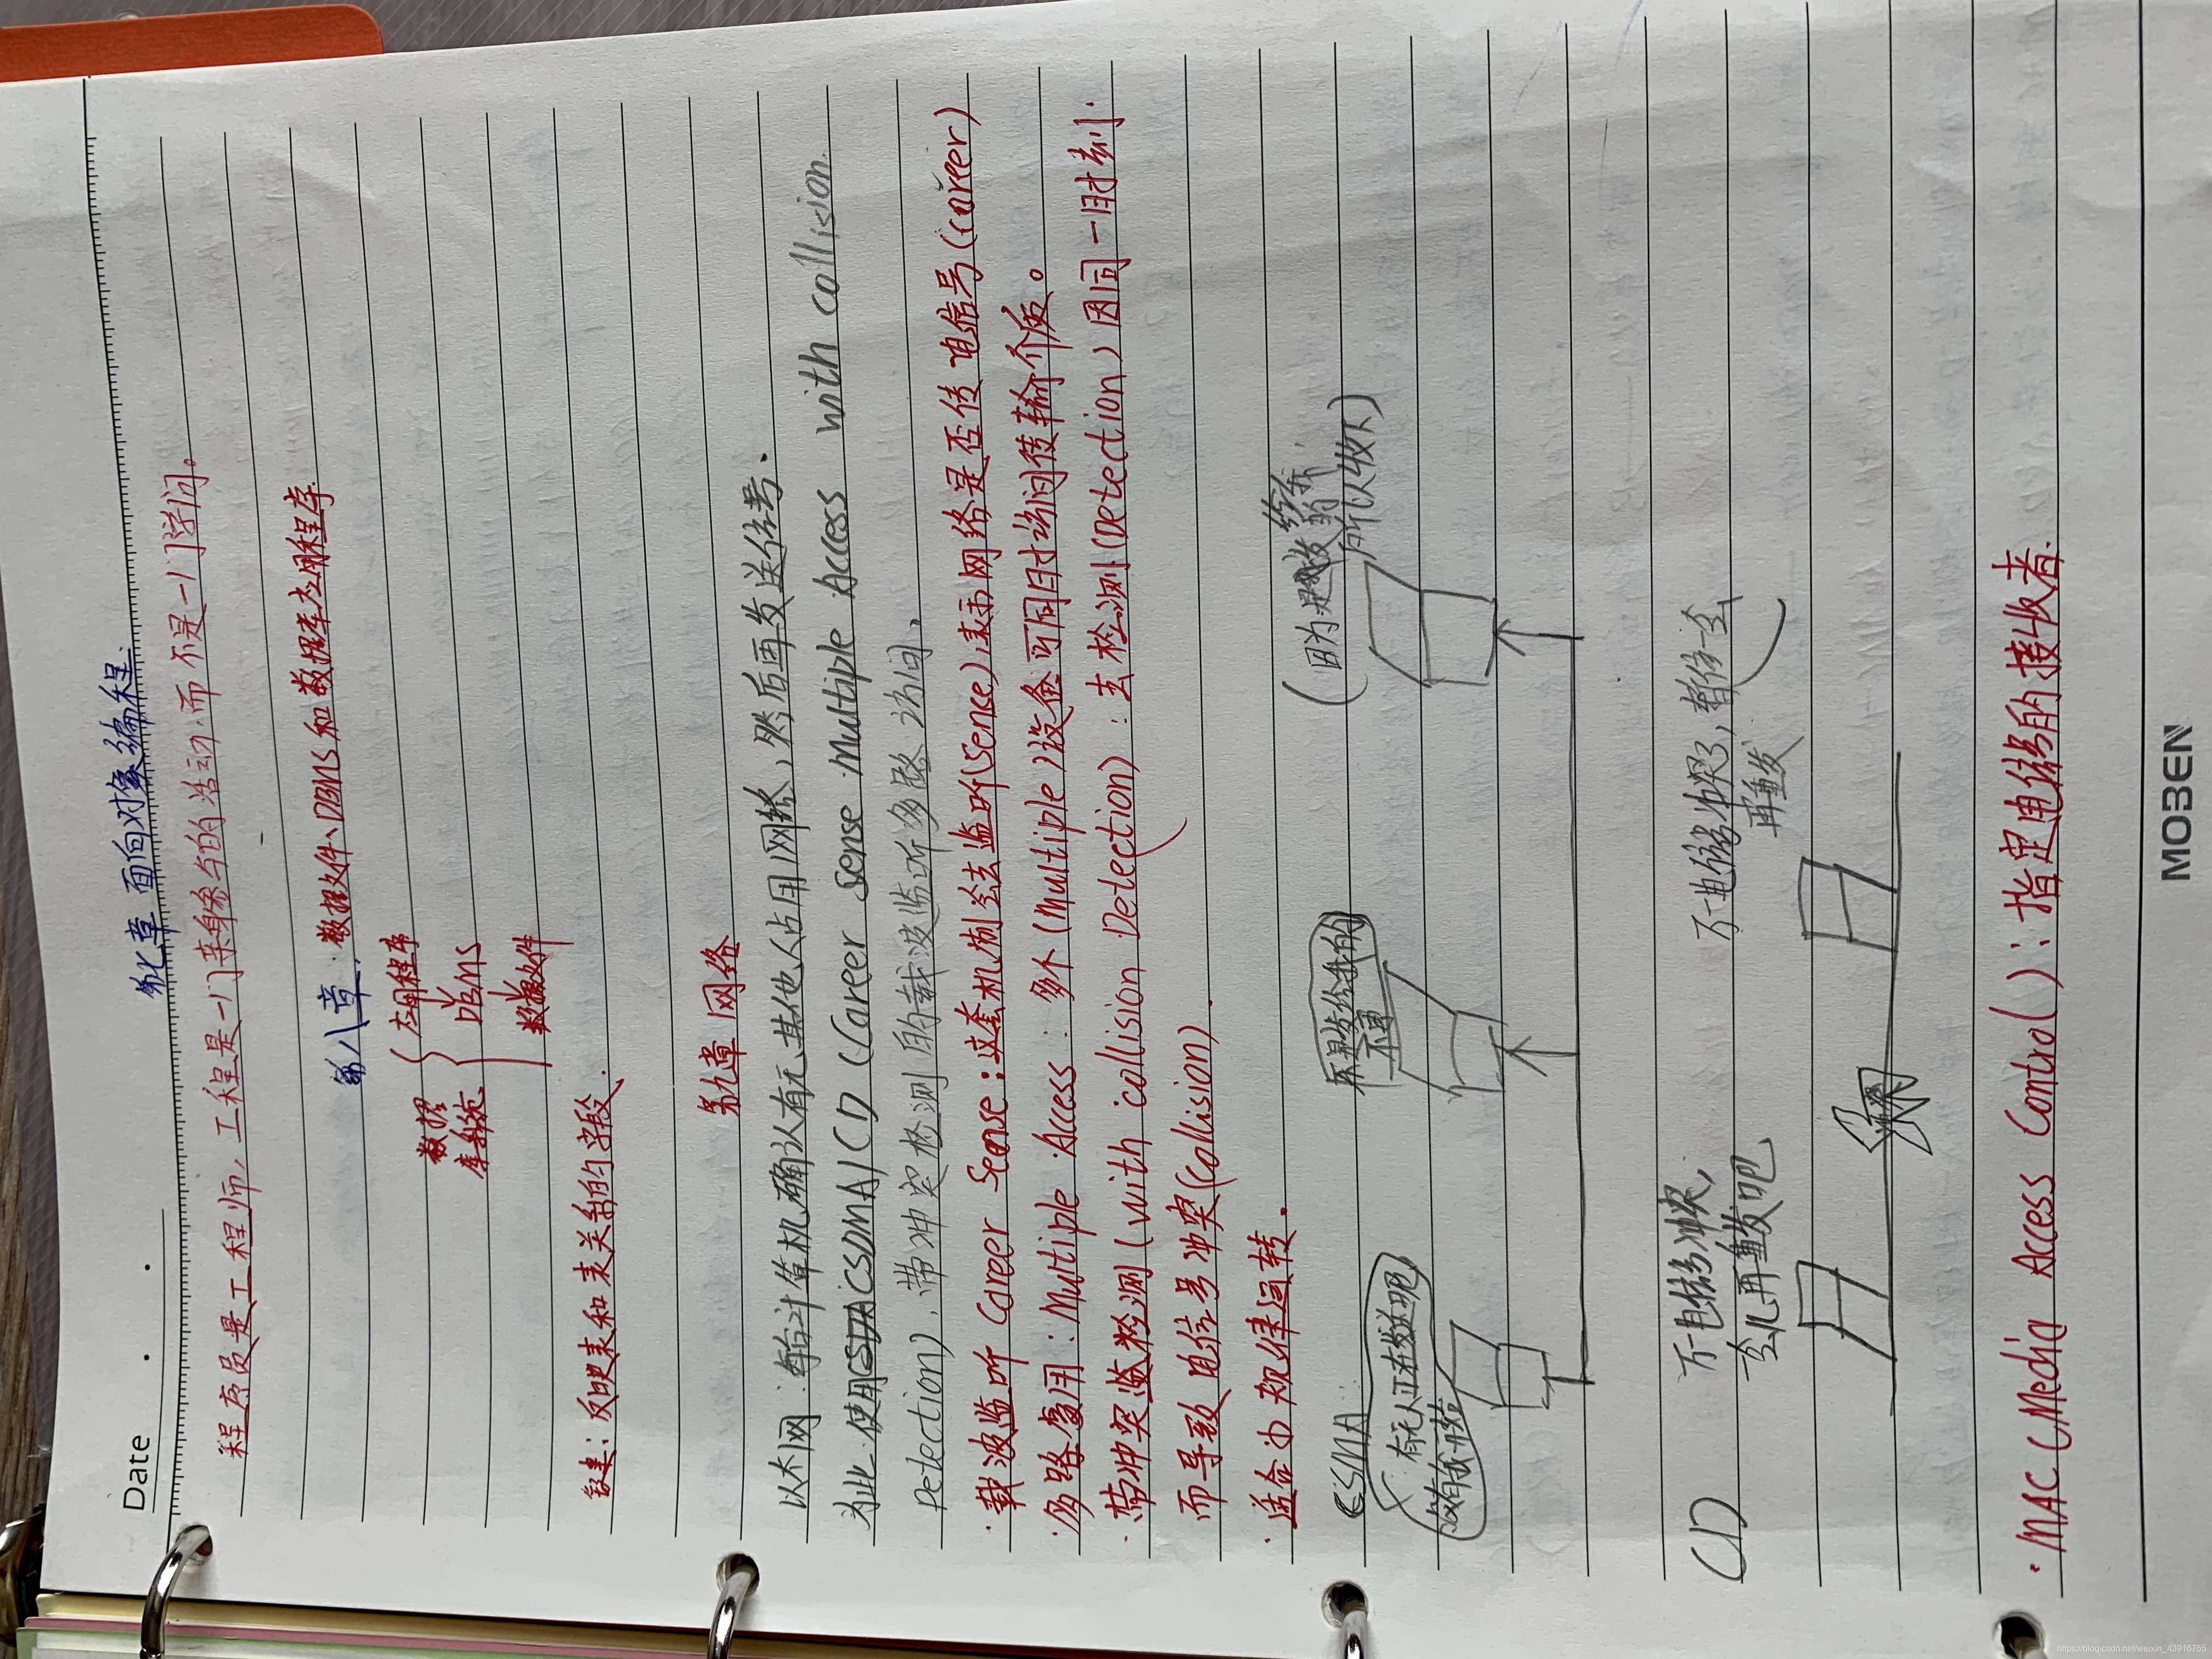 Date
第七章 面向对象编程.
程序员是工程师,工程是一门亲身参与的活动,而不是一门学问。
第八章:数据文件、DBMS和数据库应用程序.
数据库系统 { 应用程序
DBMS
数据文件
键:反映表和表关系的字段.
第九章 网络
以太网:每台计算机确认有无其他人占用网络,然后再发送信号.
为此:使用CSMA/CD (Career Sense Multiple Access with collision
Detection),带冲突检测的载波监听多路访问.
·载波监听 Career Sense:这套机制会去监听(Sence)表示网络是否传电信号(career)
·多路复用:Multiple Access:多个(Multiple)设备可同时访问传输介质。
·带冲突监检测(with collision Detection):去检测(Detection)因同一时刻
而导致电信号冲突(Collision).
·适合小规律运转.
CSMA
有无人正在发送吧
没有我开始
不是发给我的
不理
(因为是发给
我的
所以收下)
CD
万一电信号冲突,
会儿再重发吧
万一电信号冲突了,暂停一会
再重发
·MAC (Media Access Control):指定电信号的接收者.
MOBEN
https://blog.csdn.net/weixin_43916755